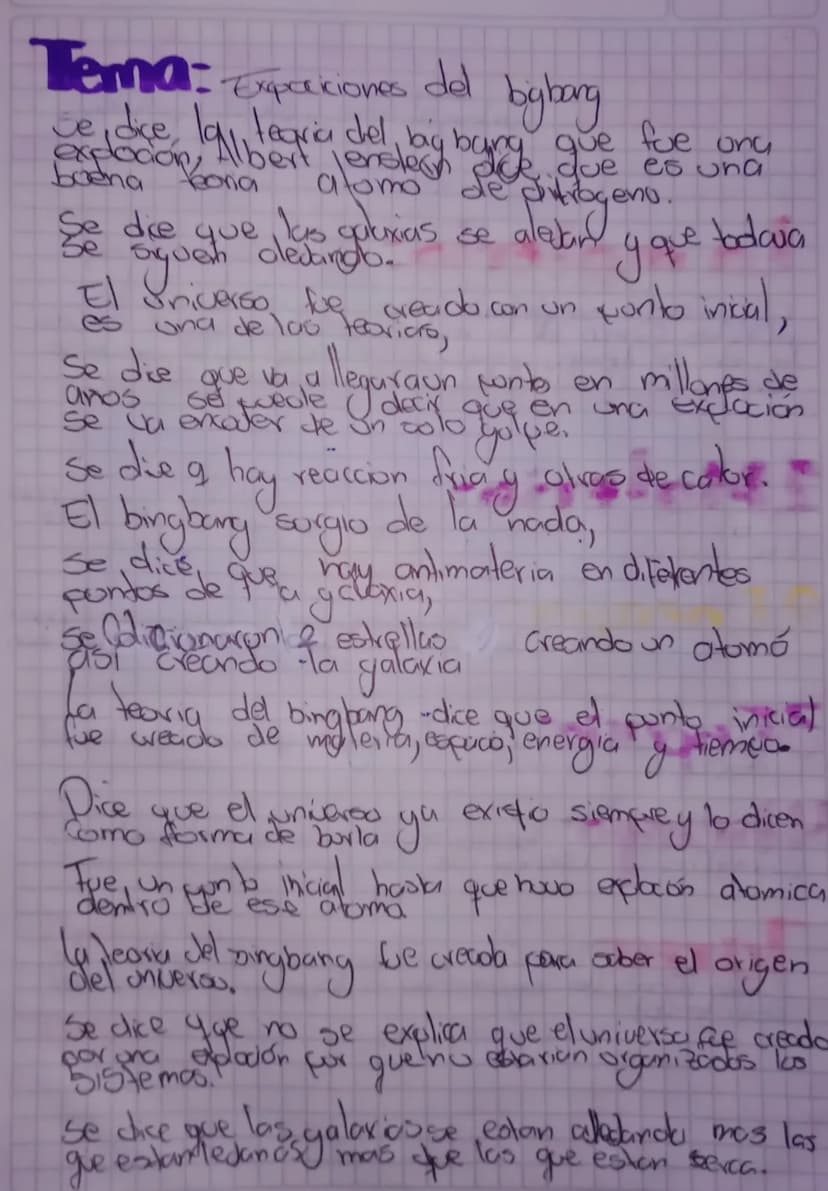 Tema: Expociciones del bigbang
Se dice, la teoria del bigbang que fue una
explocion, Albert dce que es una
buena teoria atomo de
Se dice que las galaxias se alejan y que todavia
se siguen alejando.
El Universo fue creado con un ponto inical,
es una de las teorias,
Se dice que va a llegar aun ponto en millones de
anos se puede decir que en una explocion
se va encoder de un solo golpe.
Se die q hay reaccion fria y otras de calor.
El bingbang surgio de la nada,
Se dice que hay antimateria en diferentes
pontos de la galaxia,
se 2 estrellas creando un atomó
asi creando la galaxia
La teoria del bingbang dice que el ponto inicial
fue creado de materia, espacio, energia y tiempo
Dice que el universo ya existio siempre y lo dicen
como forma de burla
Fue un ponto inicial hasta que huvo explocion atomica
dentro de ese atomo
la teoria del bingbang fue creada para saber el origen
del universo.
Se dice que no se explica que el universo fue creado
por una explocion por que no estarian organizados los
sistemas.
Se dice que las galaxias se estan alledando mas las
que estan mas que las que estan serca.